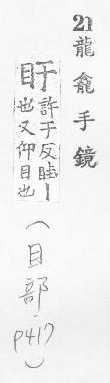 21 龍龕手鏡
盱許于反睢丨
也又仰目也
(目部. p417)